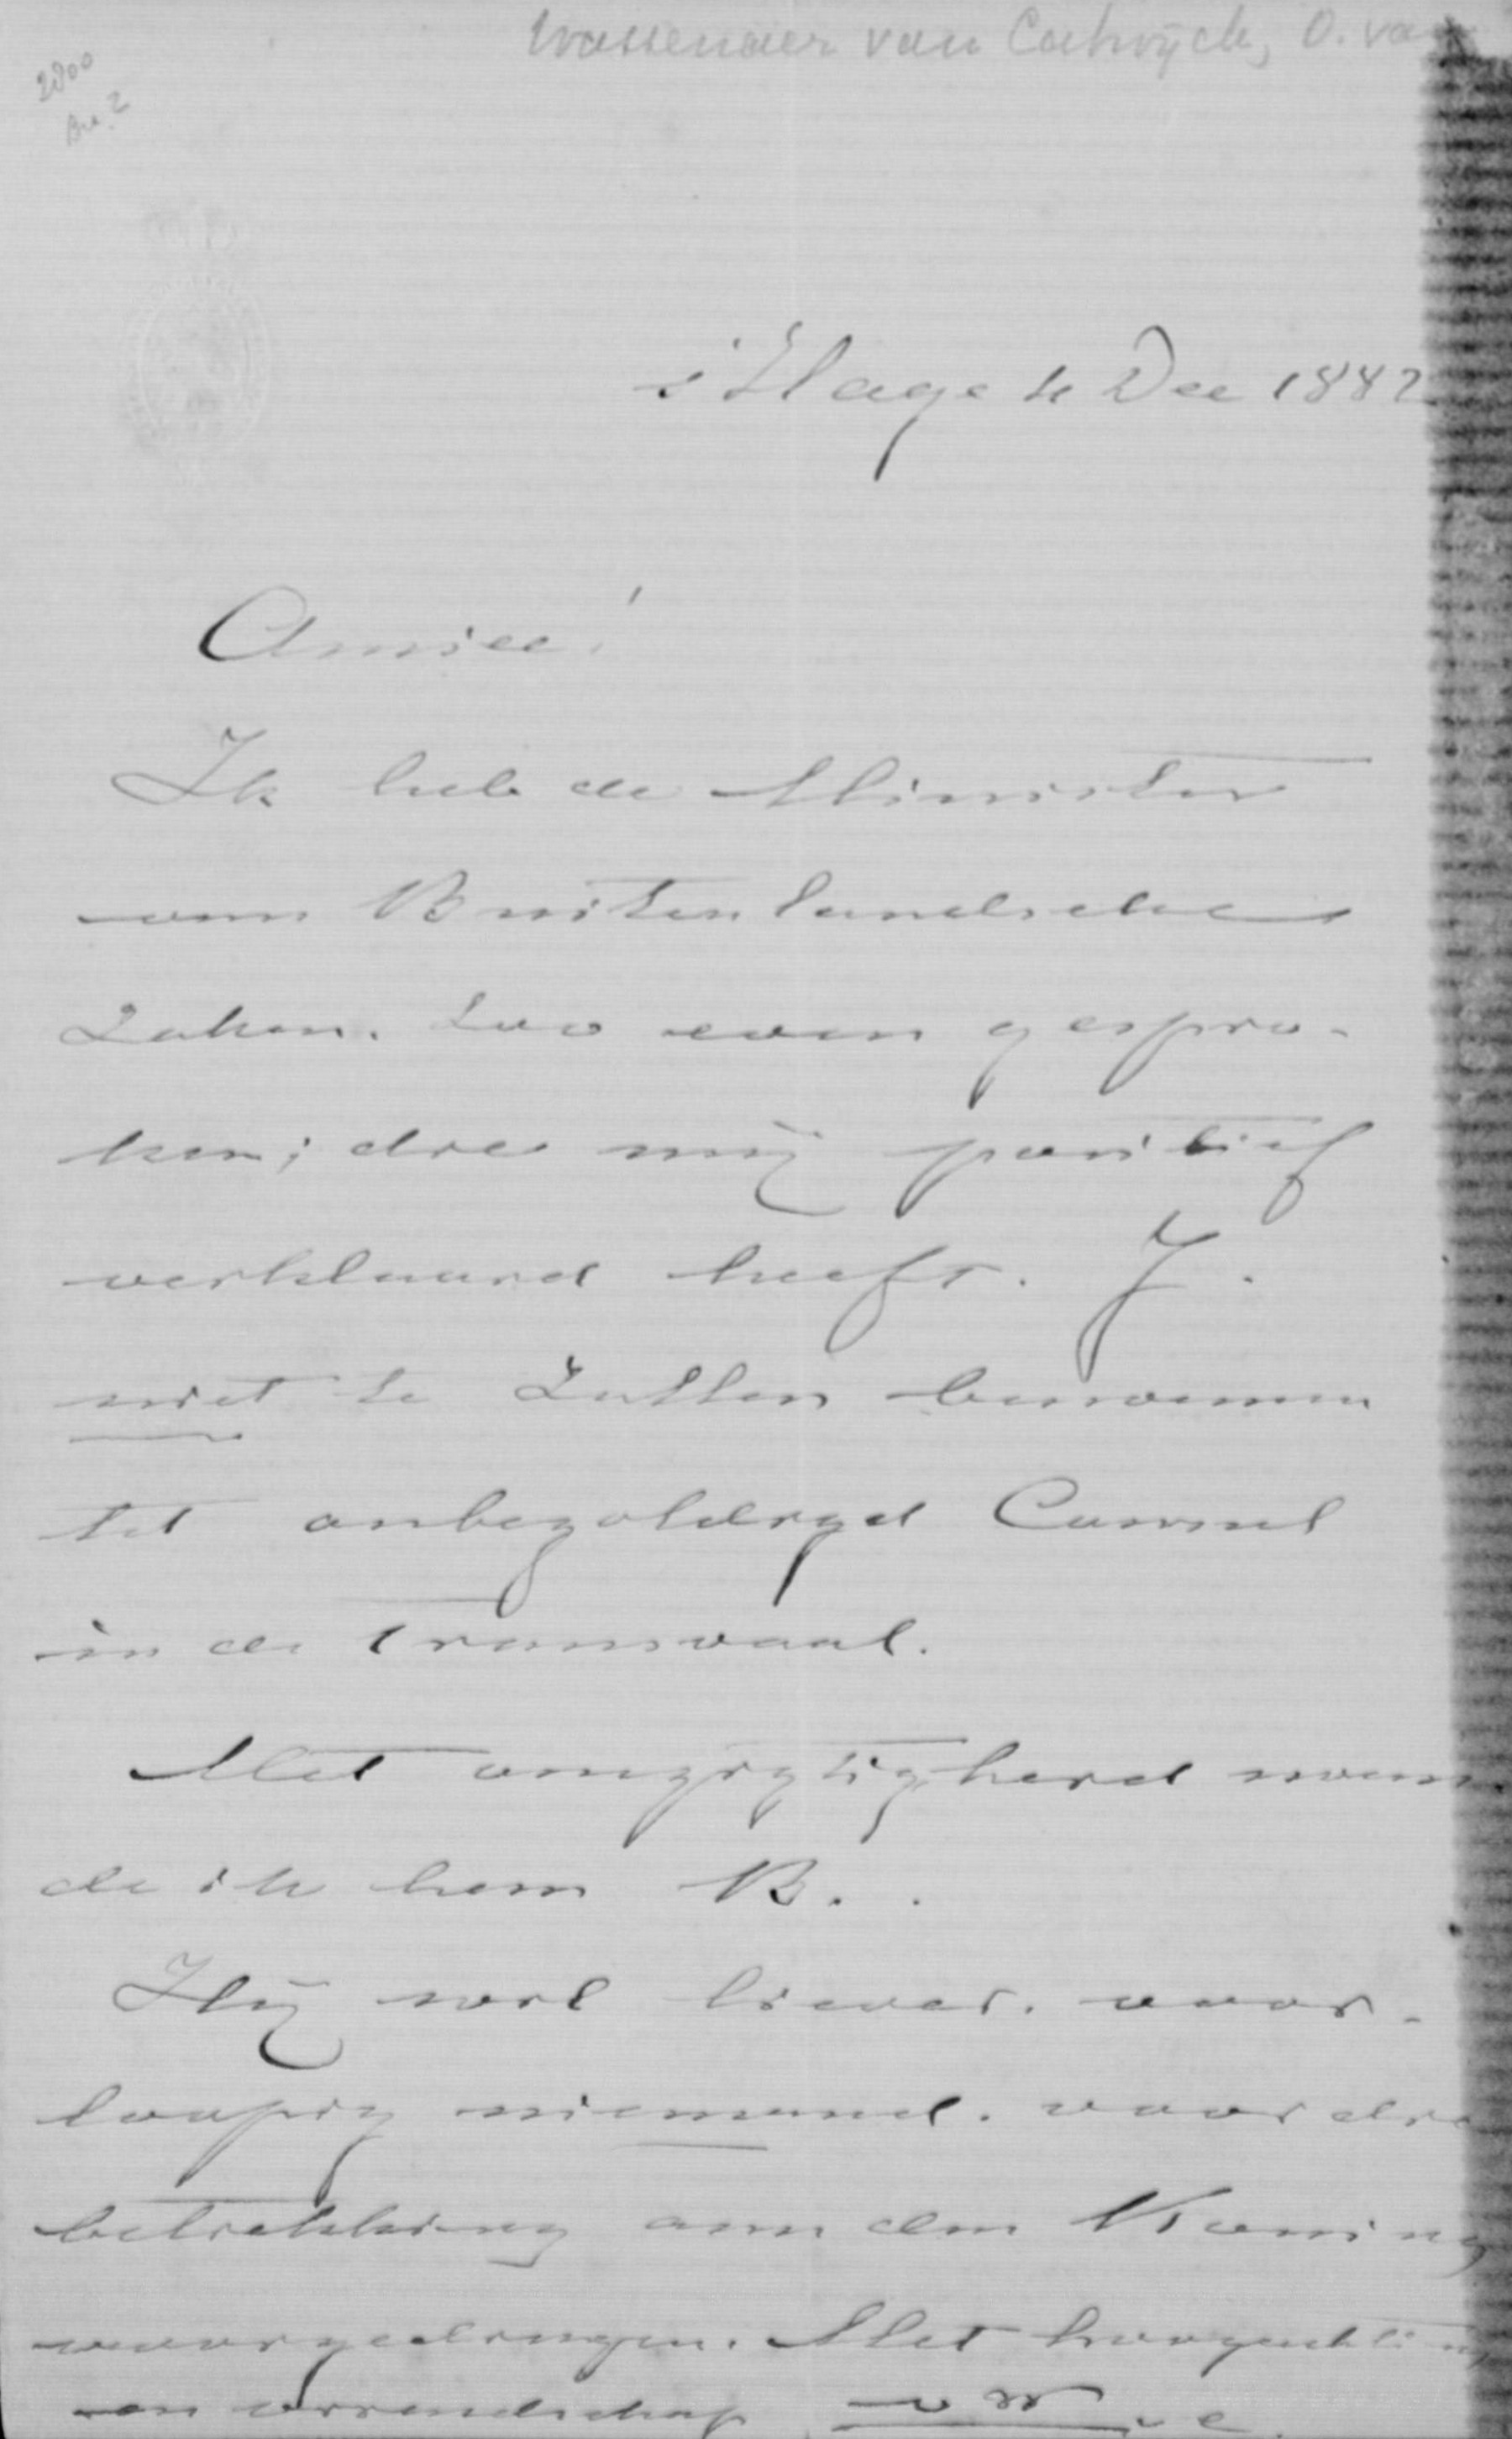 Wassenaer van Catwijck, O. van
2800
's Hage 4 Dec 1882
Amice!
Ik heb de Minister
van Buitenlandsche
Zaken. zoo even gespro-
ken; die mij positief
verklaard heeft. J.
niet te zullen benoemen
tot onbezoldigd Consul
in de Transvaal.
Met omzigtigheid noem-
de ik hem B..
Hij wil liever. voor-
loopig niemand. voor die
betrekking aan den Koning
voorgedragen. Met hoogachting
en vriendschap v W v C.